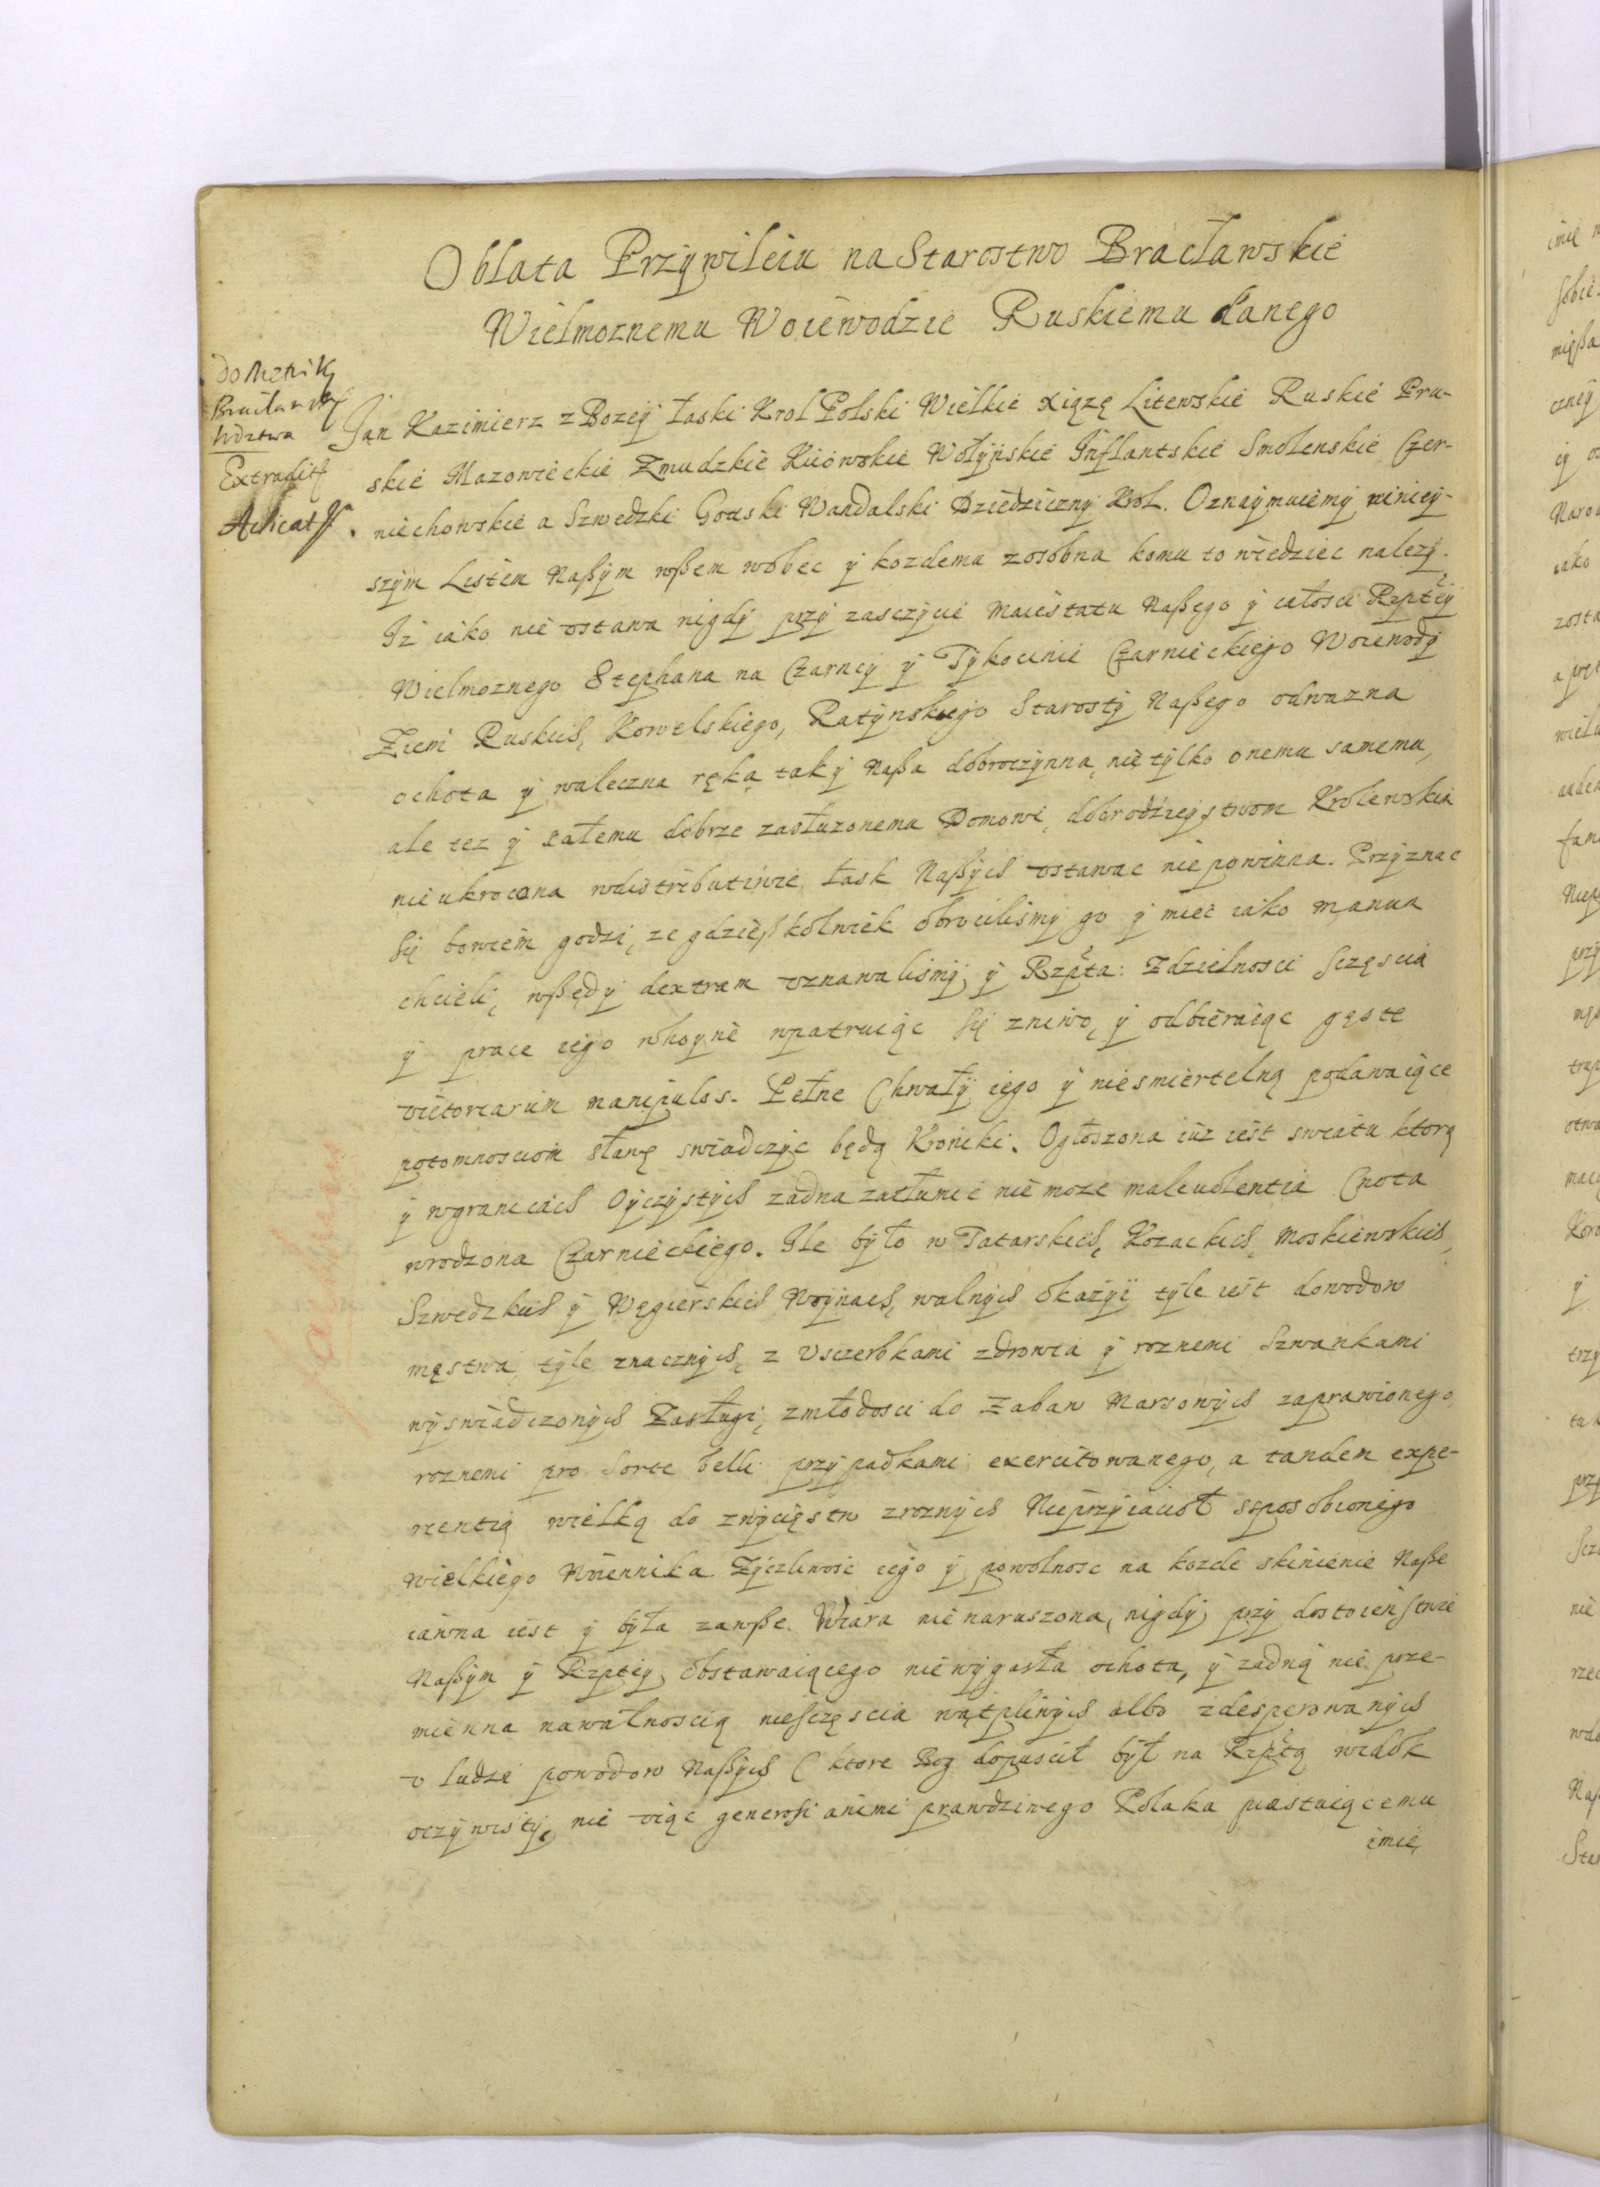 Oblata Przÿwileiu na Starostwo Bracławskie
Wielmoznemu Woiewodzie Ruskiemu danego
do Metrik
Bracławskie
wdztwa
Extradit
Jan Kazimierz z Bozeÿ łaski Krol Polski Wielkie xiązę Litewskie Ruskie Pru-
skie Mazowieckie Zmudzkie Kiiowskie Wołÿnskie Inflantskie Smolenskie Czer-
niechowskie a Szwedzki Gotski Wandalski Dziedziczny Krol. Oznaÿmuiemÿ ninieÿ-
szÿm Listem Naßÿm wßem wobec ÿ kozdemu zosobna komu to wiedziec nalezÿ.
Iz iako nie ustawa nigdÿ przÿ zasczÿcie Maiestatu Naßego ÿ całosci Rzpteÿ
Wielmoznego Stephana na Czarneÿ ÿ Tÿkocinie Czarnieckiego Woiewodÿ
Ziem Ruskich, Kowelskiego, Ratÿnskiego Starostÿ Naßego odwazna
ochota ÿ waleczna ręka, tak ÿ Naßa dobroczÿnna, nie tÿlko onemu samemu,
ale tez ÿ całemu dobrze zasłuzonemu Domowi, dobrodzieÿstwom Krolewskia
nie ukrocona wdistributiwie łask Naßÿch ustawac nie powinna. Przÿznac
Się bowiem godzi, ze gdzießkolwiek obrociliśmÿ go ÿ miec iako manua
chcieli, wßędÿ dextram uznawaliśmÿ, ÿ Rzpta: Zdzielnosci sczęscia
ÿ prace iego whoÿne wpatruiąc Się zniwo, ÿ odbieraiąc gęste
victoriarum manipulos. Pełne Chwałÿ iego ÿ niesmiertelną podawaiące
potomnosciom sławę swiadczÿc będą Kroniki. Ogłoszona iuz iest swiatu ktorą
ÿ wgranicach Oÿczÿstÿch zadna zatłumic nie moze maleuolentia Cnota
wrodzona Czarnieckiego. Ile bÿło w Tatarskich, Kozackich, Moskiewskich,
Szwedzkich ÿ Węgierskich Woÿnach, walnÿch okazÿi tÿle iest dowodow
męstwa, tÿle znacznÿch, z Usczerbkami zdrowia ÿ roznemi Szwankami
wÿswiadczonÿch Zasługi, zmłodosci do Zabaw Marsowÿch zaprawionego,
roznemi pro Sorte belli przÿpadkami exercitowanego, a tandem expe-
rientią wielką do zwÿcięstw zroznÿch Nieprzÿiacioł sposobionego
Wielkiego Woiennika. Zÿczliwosc iego ÿ powolnosc na kozde skinienie Naße
iawna iest ÿ bÿła zawße. Wiara nienaruszona, nigdÿ przÿ dostoienstwie
Naßÿm ÿ Rzpteÿ obstawaiącego niewÿgasła ochota, ÿ zadną nie prze-
mienna nawałnoscią niesczęscia wątpliwÿch albo zdesperowanÿch
u ludzi powodow Naßÿch (ktore Bog dopuscił bÿł na Rzptą widok
oczÿwistÿ, nie uiąc generosi animi prawdziwego Polaka piastuiącemu
imię